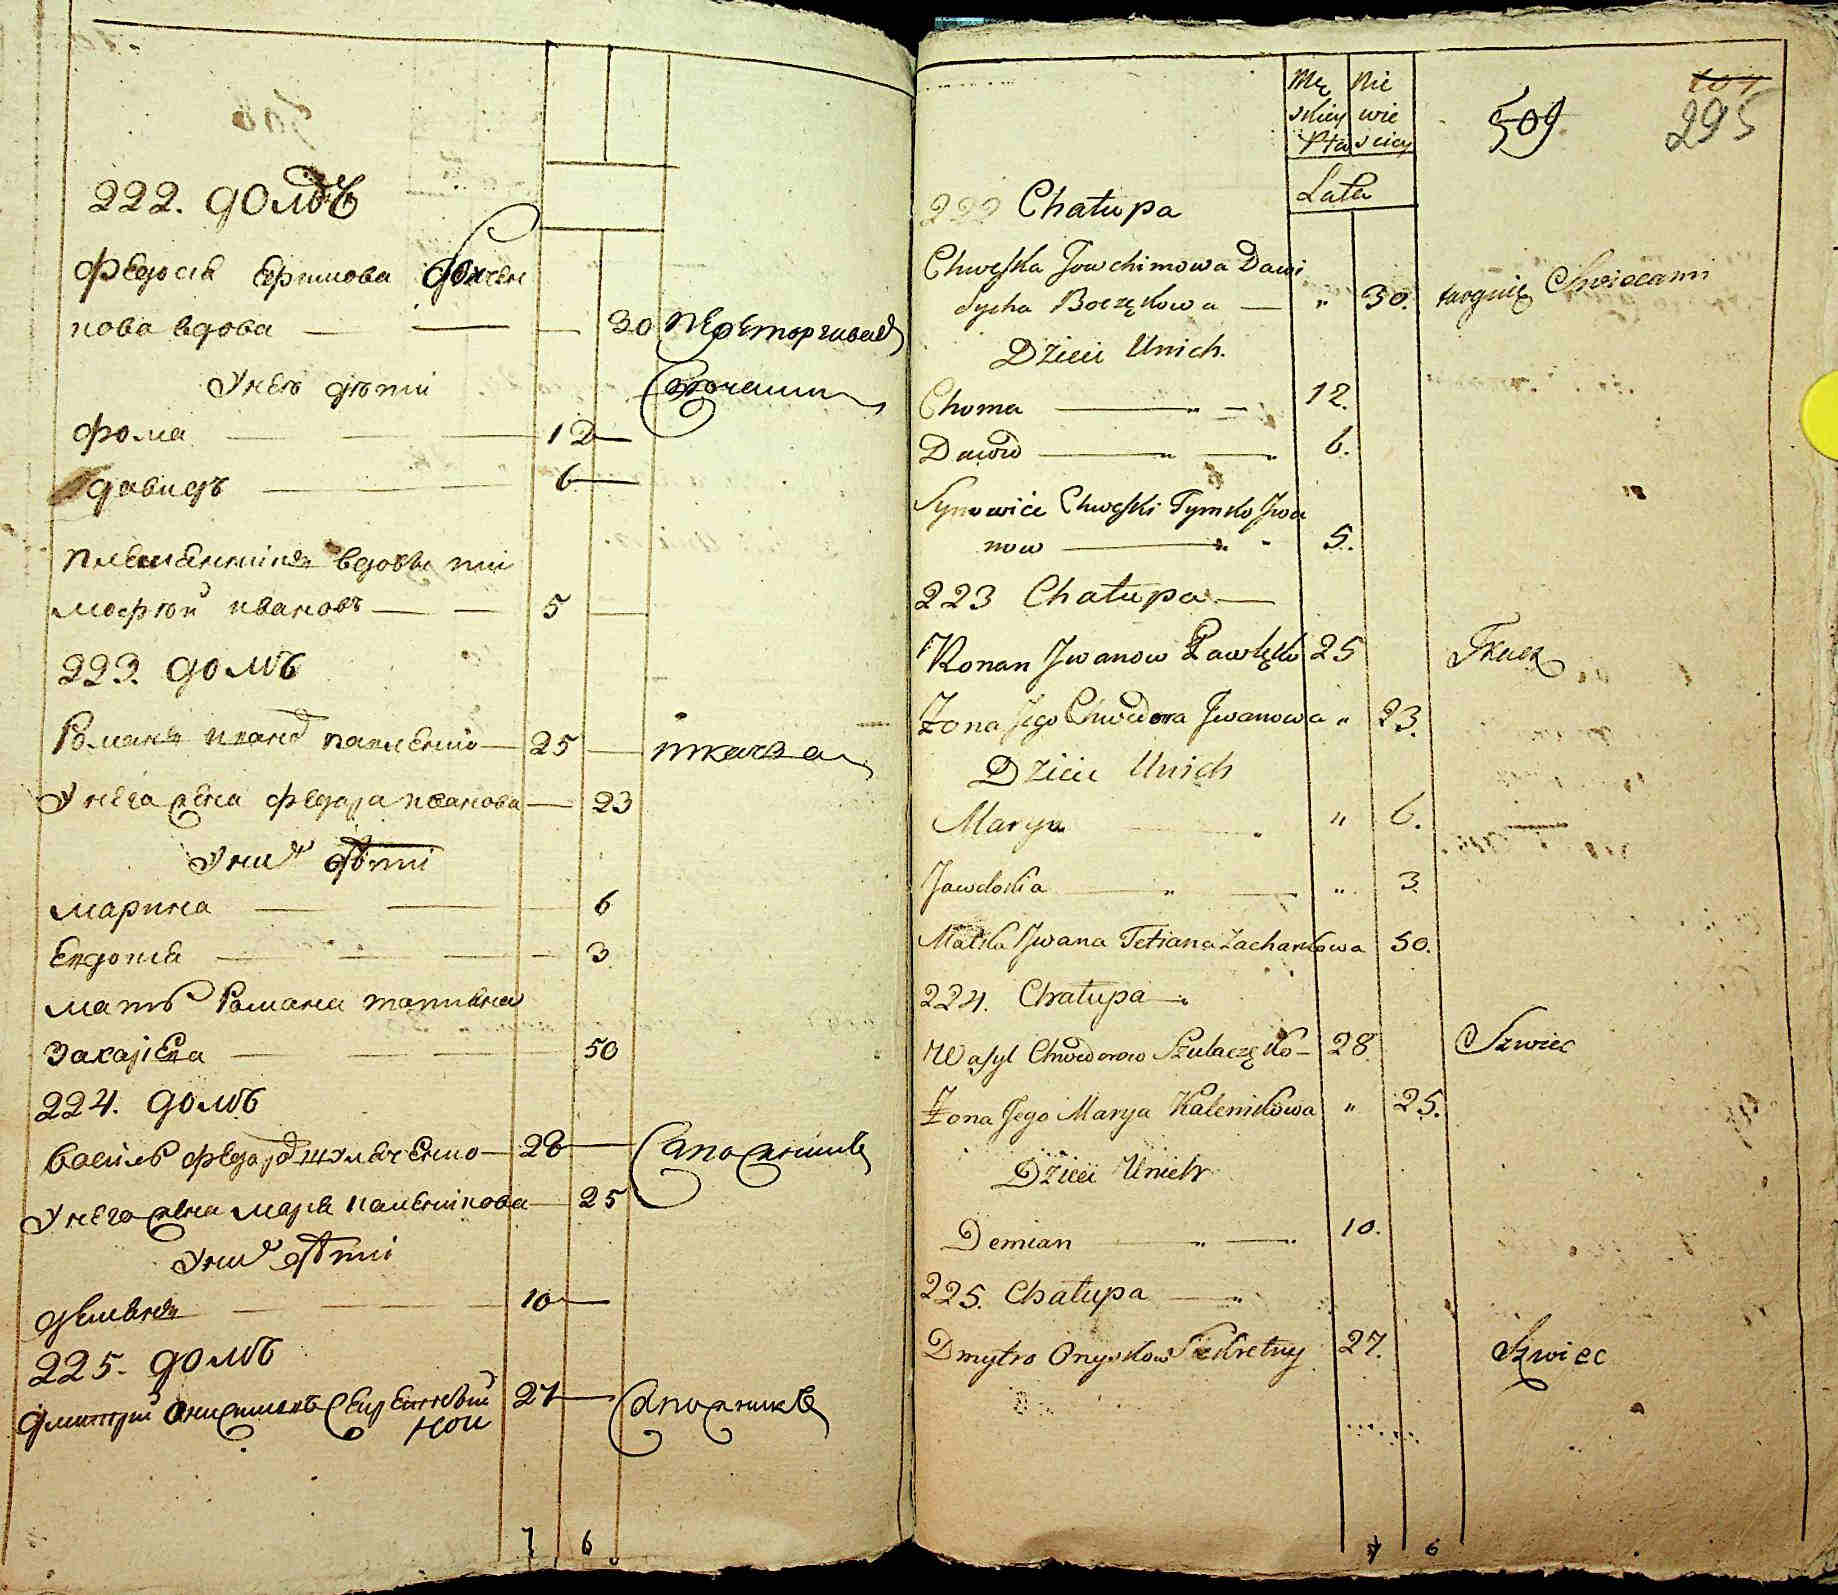 222. домъ
Федосia Ефимова
нова вдова — — — 30 переторгивает
У нея дѣти
Фома — — — 12 —
Давидъ — — 6 —
племенникъ вдовы ти
мофей ивановъ — — 5 —
223. домъ
Романъ Иванов Павленко — 25 — ткачь
У него жена Федора иванова — 23
У них дѣти
Марина — — — 6
Евдокiя — — — 3
мать Романа татияна
Захарiева — — — 50
224. домъ
Василь Федоров Шулаченко — 28 — Сапожникъ
У него жена Мария Каленикова — 25
У них дѣти
Демьянъ — — — 10 —
225. домъ
Дмитрий 27 — Сапожникъ
ной
7 6
Mę skiey Nie wie sciey
Płci
Lata
509
107
295
222 Chałupa
Chweska Jowchimowa Dawi
dycha Boczękowa — " 30. targuie Swiecami
Dzieci Unich.
Choma — " — 12.
Dawid — " — " 6.
Synowiec Chweski Tymko Jwa
now — " " 5.
223 Chałupa —
Roman Jwanow Pawlęko 25 Tkacz
Żona Jego Chwedora Jwanowa " 23.
Dzieci Unich
Marya " 6.
Jawdokia — " — " 3.
Matka Jwana Tetiana Zacharkowa 50.
224. Chałupa — "
Wasyl Chwedorow Szulaczęko — 28. Szwiec
Żona Jego Marya Kalenikowa " 25.
Dzieci Unich
Demian — " — " 10.
225. Chałupa — "
Dmytro Onyskow Sekretny 27. Szwiec
7 6